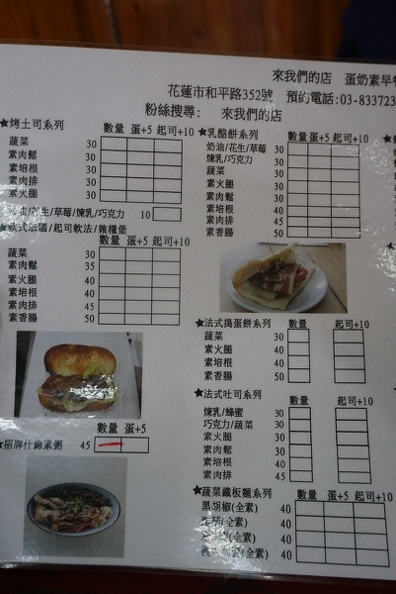 來我們的店 蛋奶素早
花蓮市和平路352號 預約電話:03-833723
粉絲搜尋: 來我們的店
★烤土司系列 數量 蛋+5 起司+10
蔬菜 30
素肉鬆 30
素培根 30
素肉排 30
素火腿 30
奶油/花生/草莓/煉乳/巧克力 10
★軟式法國/起司軟法/雜糧堡
數量 蛋+5 起司+10
蔬菜 30
素肉鬆 35
素火腿 40
素培根 40
素肉排 45
素香腸 50
數量 蛋+5
★招牌什錦素粥 45
★乳酪餅系列 數量 蛋+5 起司+10
奶油/花生/草莓 30
煉乳/巧克力
蔬菜 30
素火腿 30
素肉鬆 35
素培根 40
素肉排 45
素香腸 50
★法式搗蛋餅系列 數量 起司+10
蔬菜 30
素火腿 40
素培根 40
素香腸 50
★法式吐司系列 數量 起司+10
煉乳/蜂蜜 30
巧克力/蔬菜
素火腿 40
素培根 40
素肉排 45
★蔬菜鐵板麵系列
數量 蛋+5 起司+10
黑胡椒(全素) 40
(全素) 40
(全素) 40
(全素) 40